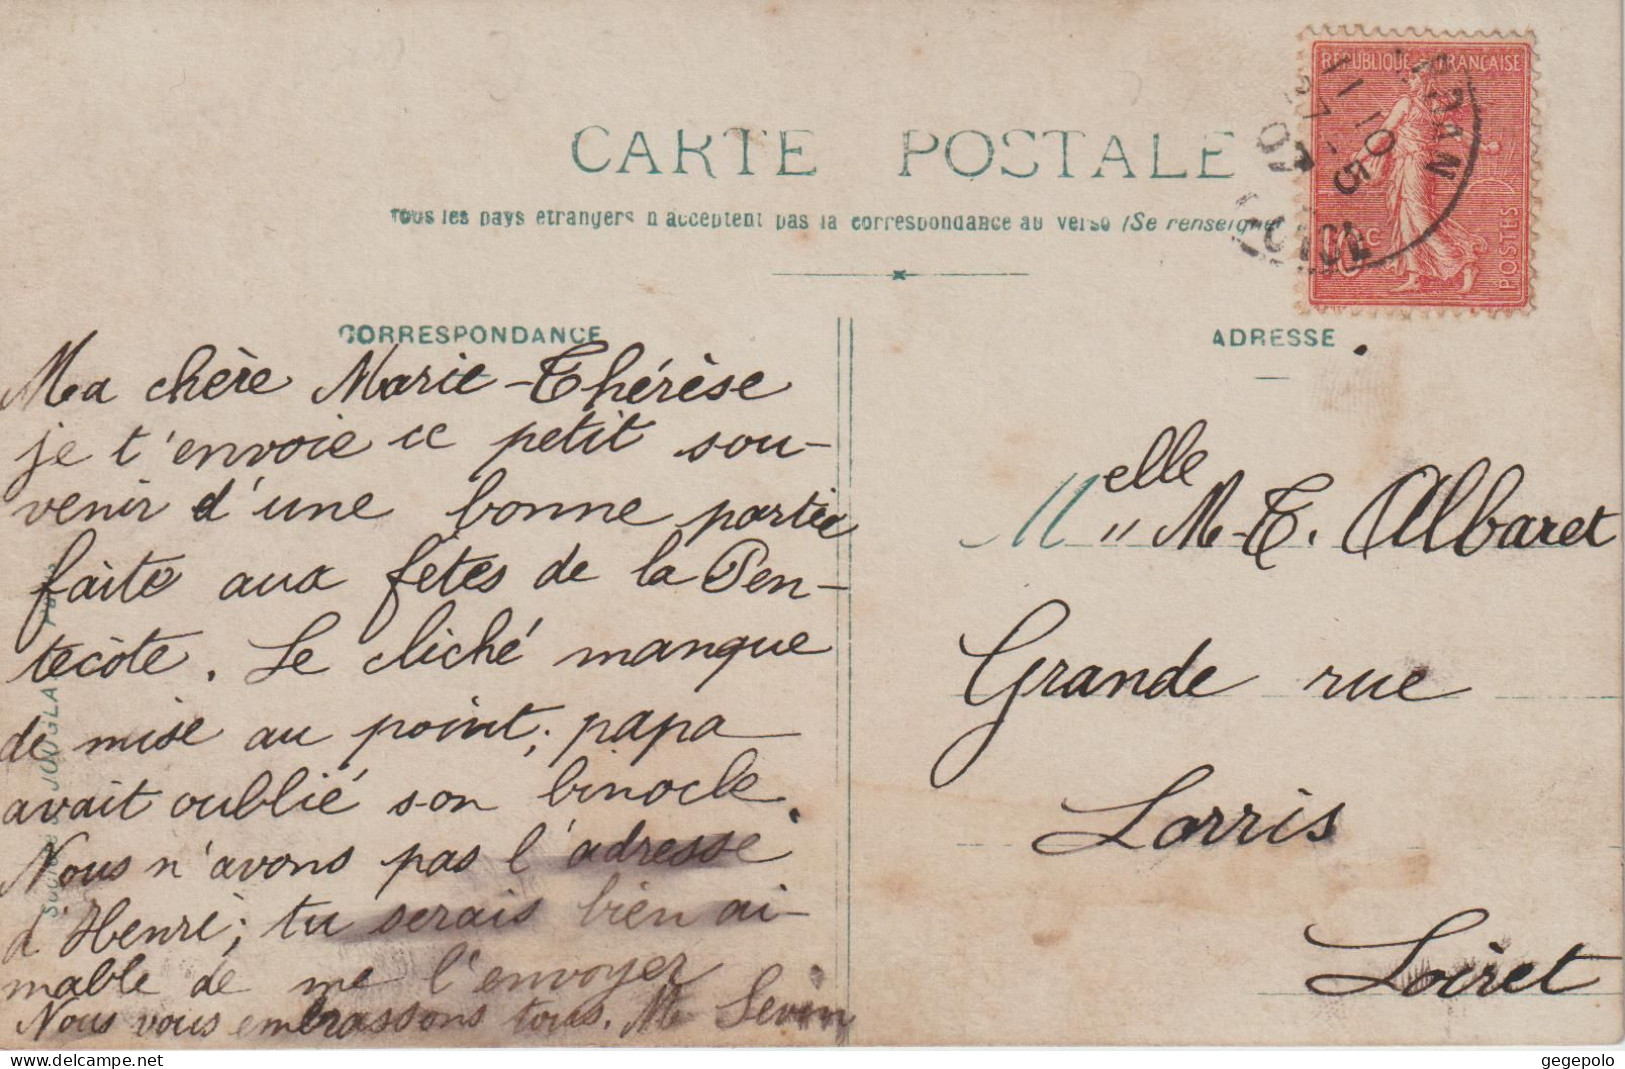 CARTE POSTALE
Tous les pays étrangers n'acceptent pas la correspondance au verso (Se renseigne
REPUBLIQUE FRANÇAISE
10 c
POSTES
11 10
27 - 5
07
CORRESPONDANCE
Ma chère Marie-Thérèse
je t'envoie ce petit sou-
venir d'une bonne partie
faite aux fêtes de la Pen-
tecôte. Le cliché manque
de mise au point; papa
avait oublié son binocle.
Nous n'avons pas l'adresse
d'Henri; tu serais bien ai-
mable de me l'envoyer
Nous vous embrassons tous. M Sevin
ADRESSE
Melle M-T. Albaret
Grande rue
Lorris
Loiret
JOUGLA
gegepolo